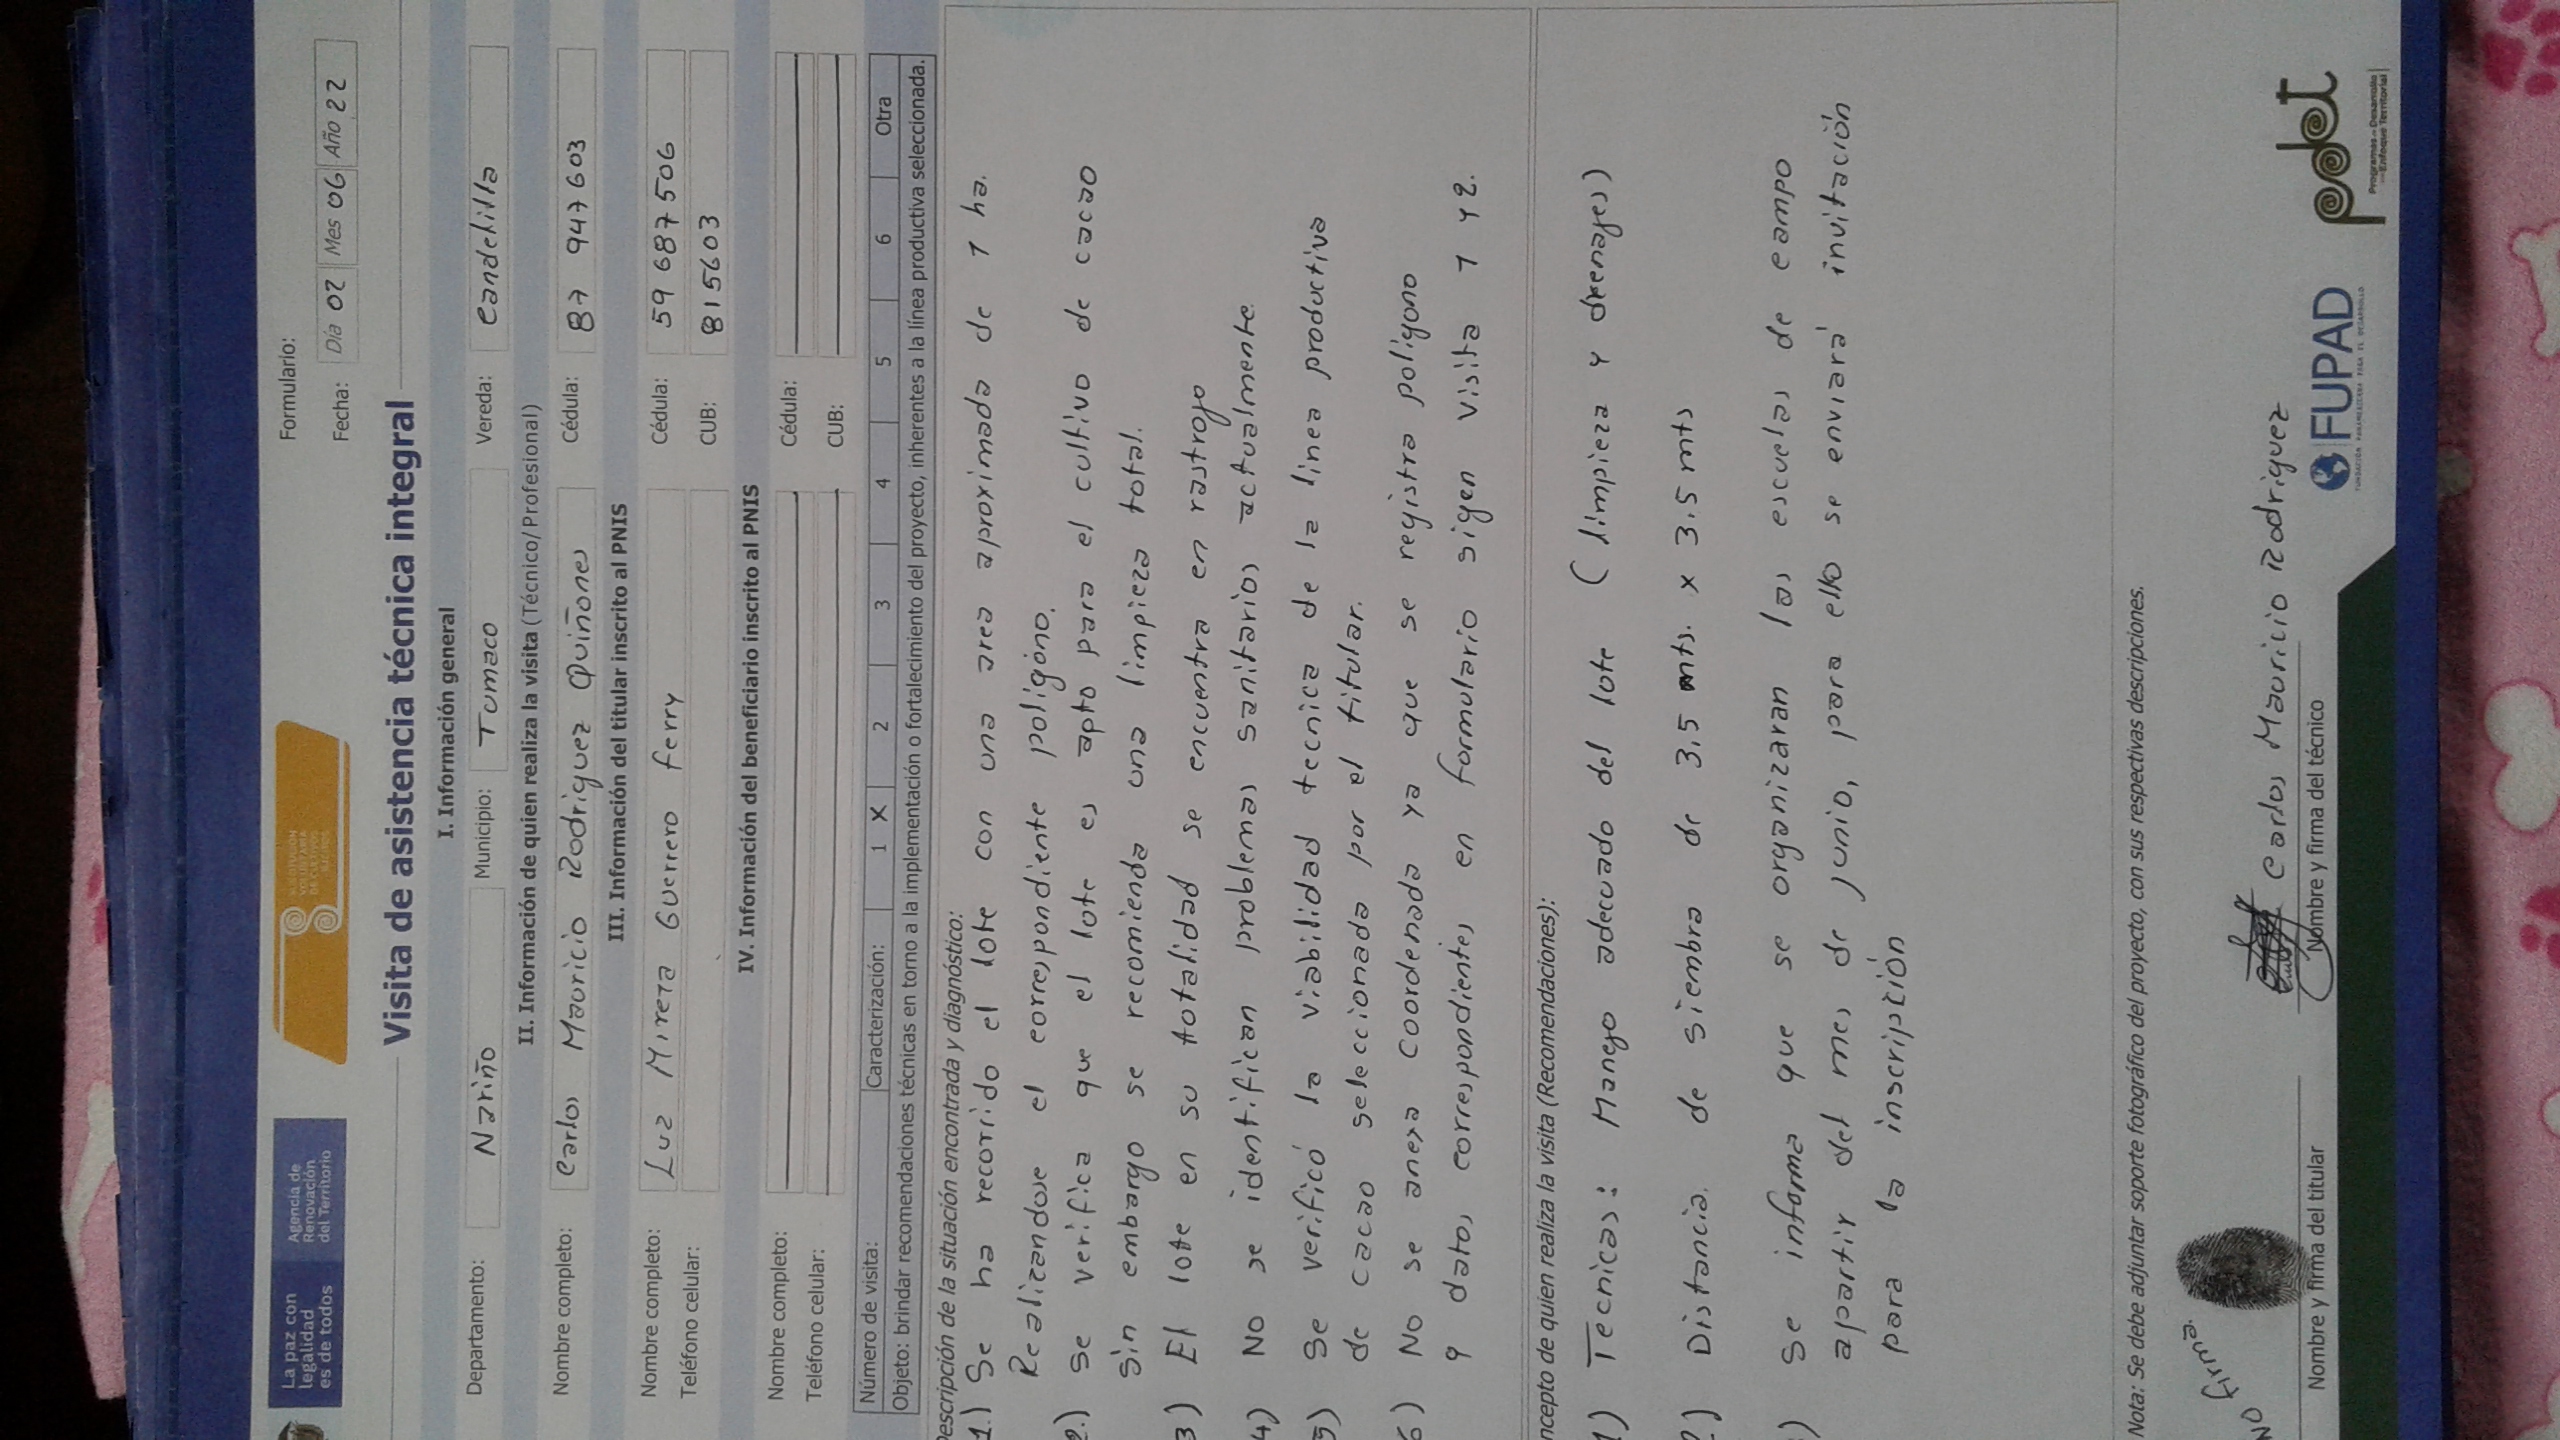 La paz con
legalidad
es de todos
Agencia de
Renovación
del Territorio
SUSTITUCIÓN
VOLUNTARIA
DE CULTIVOS
ILÍCITOS
Formulario:
Fecha: Día 02 Mes 06 Año 22
Visita de asistencia técnica integral
I. Información general
Departamento: Nariño Municipio: Tumaco Vereda: Candelilla
II. Información de quien realiza la visita (Técnico/Profesional)
Nombre completo: Carlos Mauricio Rodriguez Quiñones Cédula: 87 947 603
III. Información del titular inscrito al PNIS
Nombre completo: Luz Mireza Guerrero Ferry Cédula: 59 687 506
Teléfono celular: CUB: 815603
IV. Información del beneficiario inscrito al PNIS
Nombre completo: Cédula:
Teléfono celular: CUB:
Número de visita: Caracterización: 1 X 2 3 4 5 6 Otra
Objeto: brindar recomendaciones técnicas en torno a la implementación o fortalecimiento del proyecto, inherentes a la línea productiva seleccionada.
Descripción de la situación encontrada y diagnóstico:
1.) Se ha recorrido el lote con una area aproximada de 1 ha.
Realizandose el correspondiente poligono.
2.) Se verifica que el lote es apto para el cultivo de cacao
Sin embargo se recomienda una limpieza total.
3) El lote en su totalidad se encuentra en rastrojo
4) No se identifican problemas sanitarios actualmente.
5) Se verificó la viabilidad tecnica de la linea productiva
de cacao seleccionada por el titular.
6) No se anexa coordenada ya que se registra poligono
y datos correspondientes en formulario sigen visita 1 y 2.
ncepto de quien realiza la visita (Recomendaciones):
1) Tecnicas: Manejo adecuado del lote (limpieza y drenajes)
2) Distancia de siembra de 3.5 mts. x 3.5 mts
) Se informa que se organizaran las escuelas de campo
apartir del mes de junio, para ello se enviará invitación
para la inscripción
Nota: Se debe adjuntar soporte fotográfico del proyecto, con sus respectivas descripciones.
NO firma.
Carlos Mauricio Rodriguez
Nombre y firma del titular
Nombre y firma del técnico
FUPAD
FUNDACIÓN PANAMERICANA PARA EL DESARROLLO
pdet
Programas de Desarrollo
con Enfoque Territorial